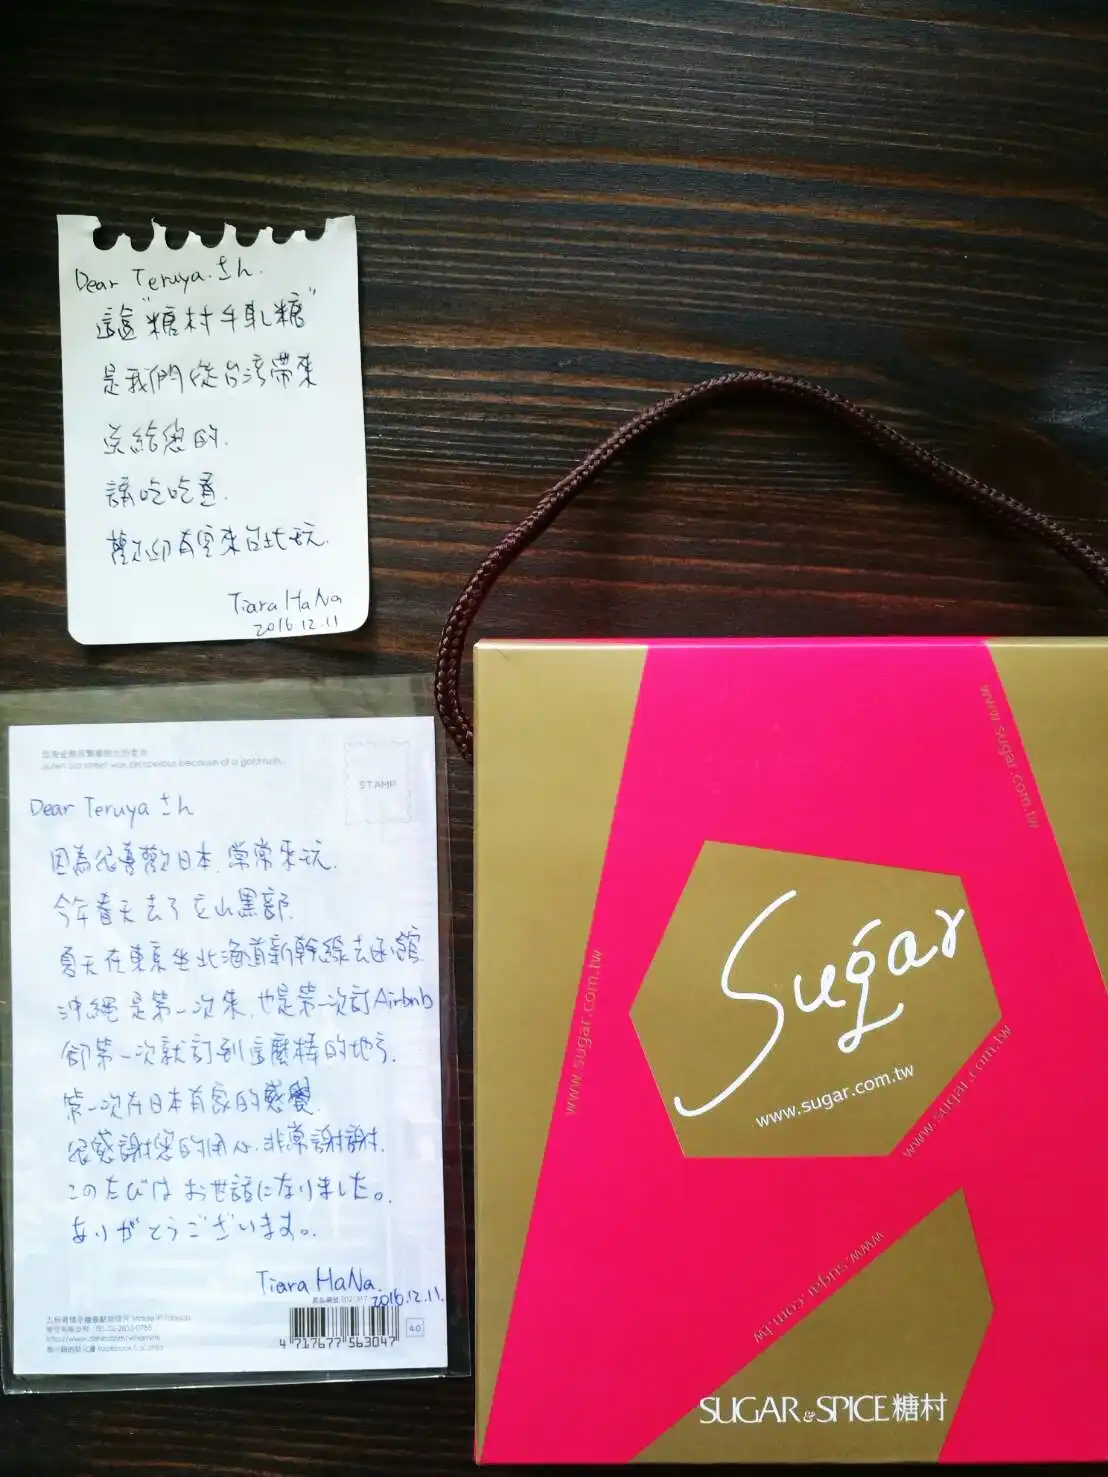 Dear Teruya.さん.
這盒"糖村牛軋糖"
是我們從台灣帶來
送給您的.
請吃吃看.
歡迎有空來台北玩.
Tiara HaNa
2016.12.11
Jiufen old street was prosperous because of a gold rush.
STAMP
Dear Teruya さん
因為很喜歡日本,常常來玩.
今年春天去了立山黑部.
夏天在東京坐北海道新幹線去函館.
沖繩是第一次來,也是第一次訂Airbnb
卻第一次就訂到這麼棒的地方.
第一次在日本有家的感覺.
很感謝您的用心.非常謝謝.
このたびは お世話になりました。
ありがとうございます。
Tiara HaNa.
2016.12.11.
4 717677 563047
40
www.sugar.com.tw
www.sugar.com.tw
Sugar
www.sugar.com.tw
www.sugar.com.tw
www.sugar.com.tw
SUGAR & SPICE 糖村